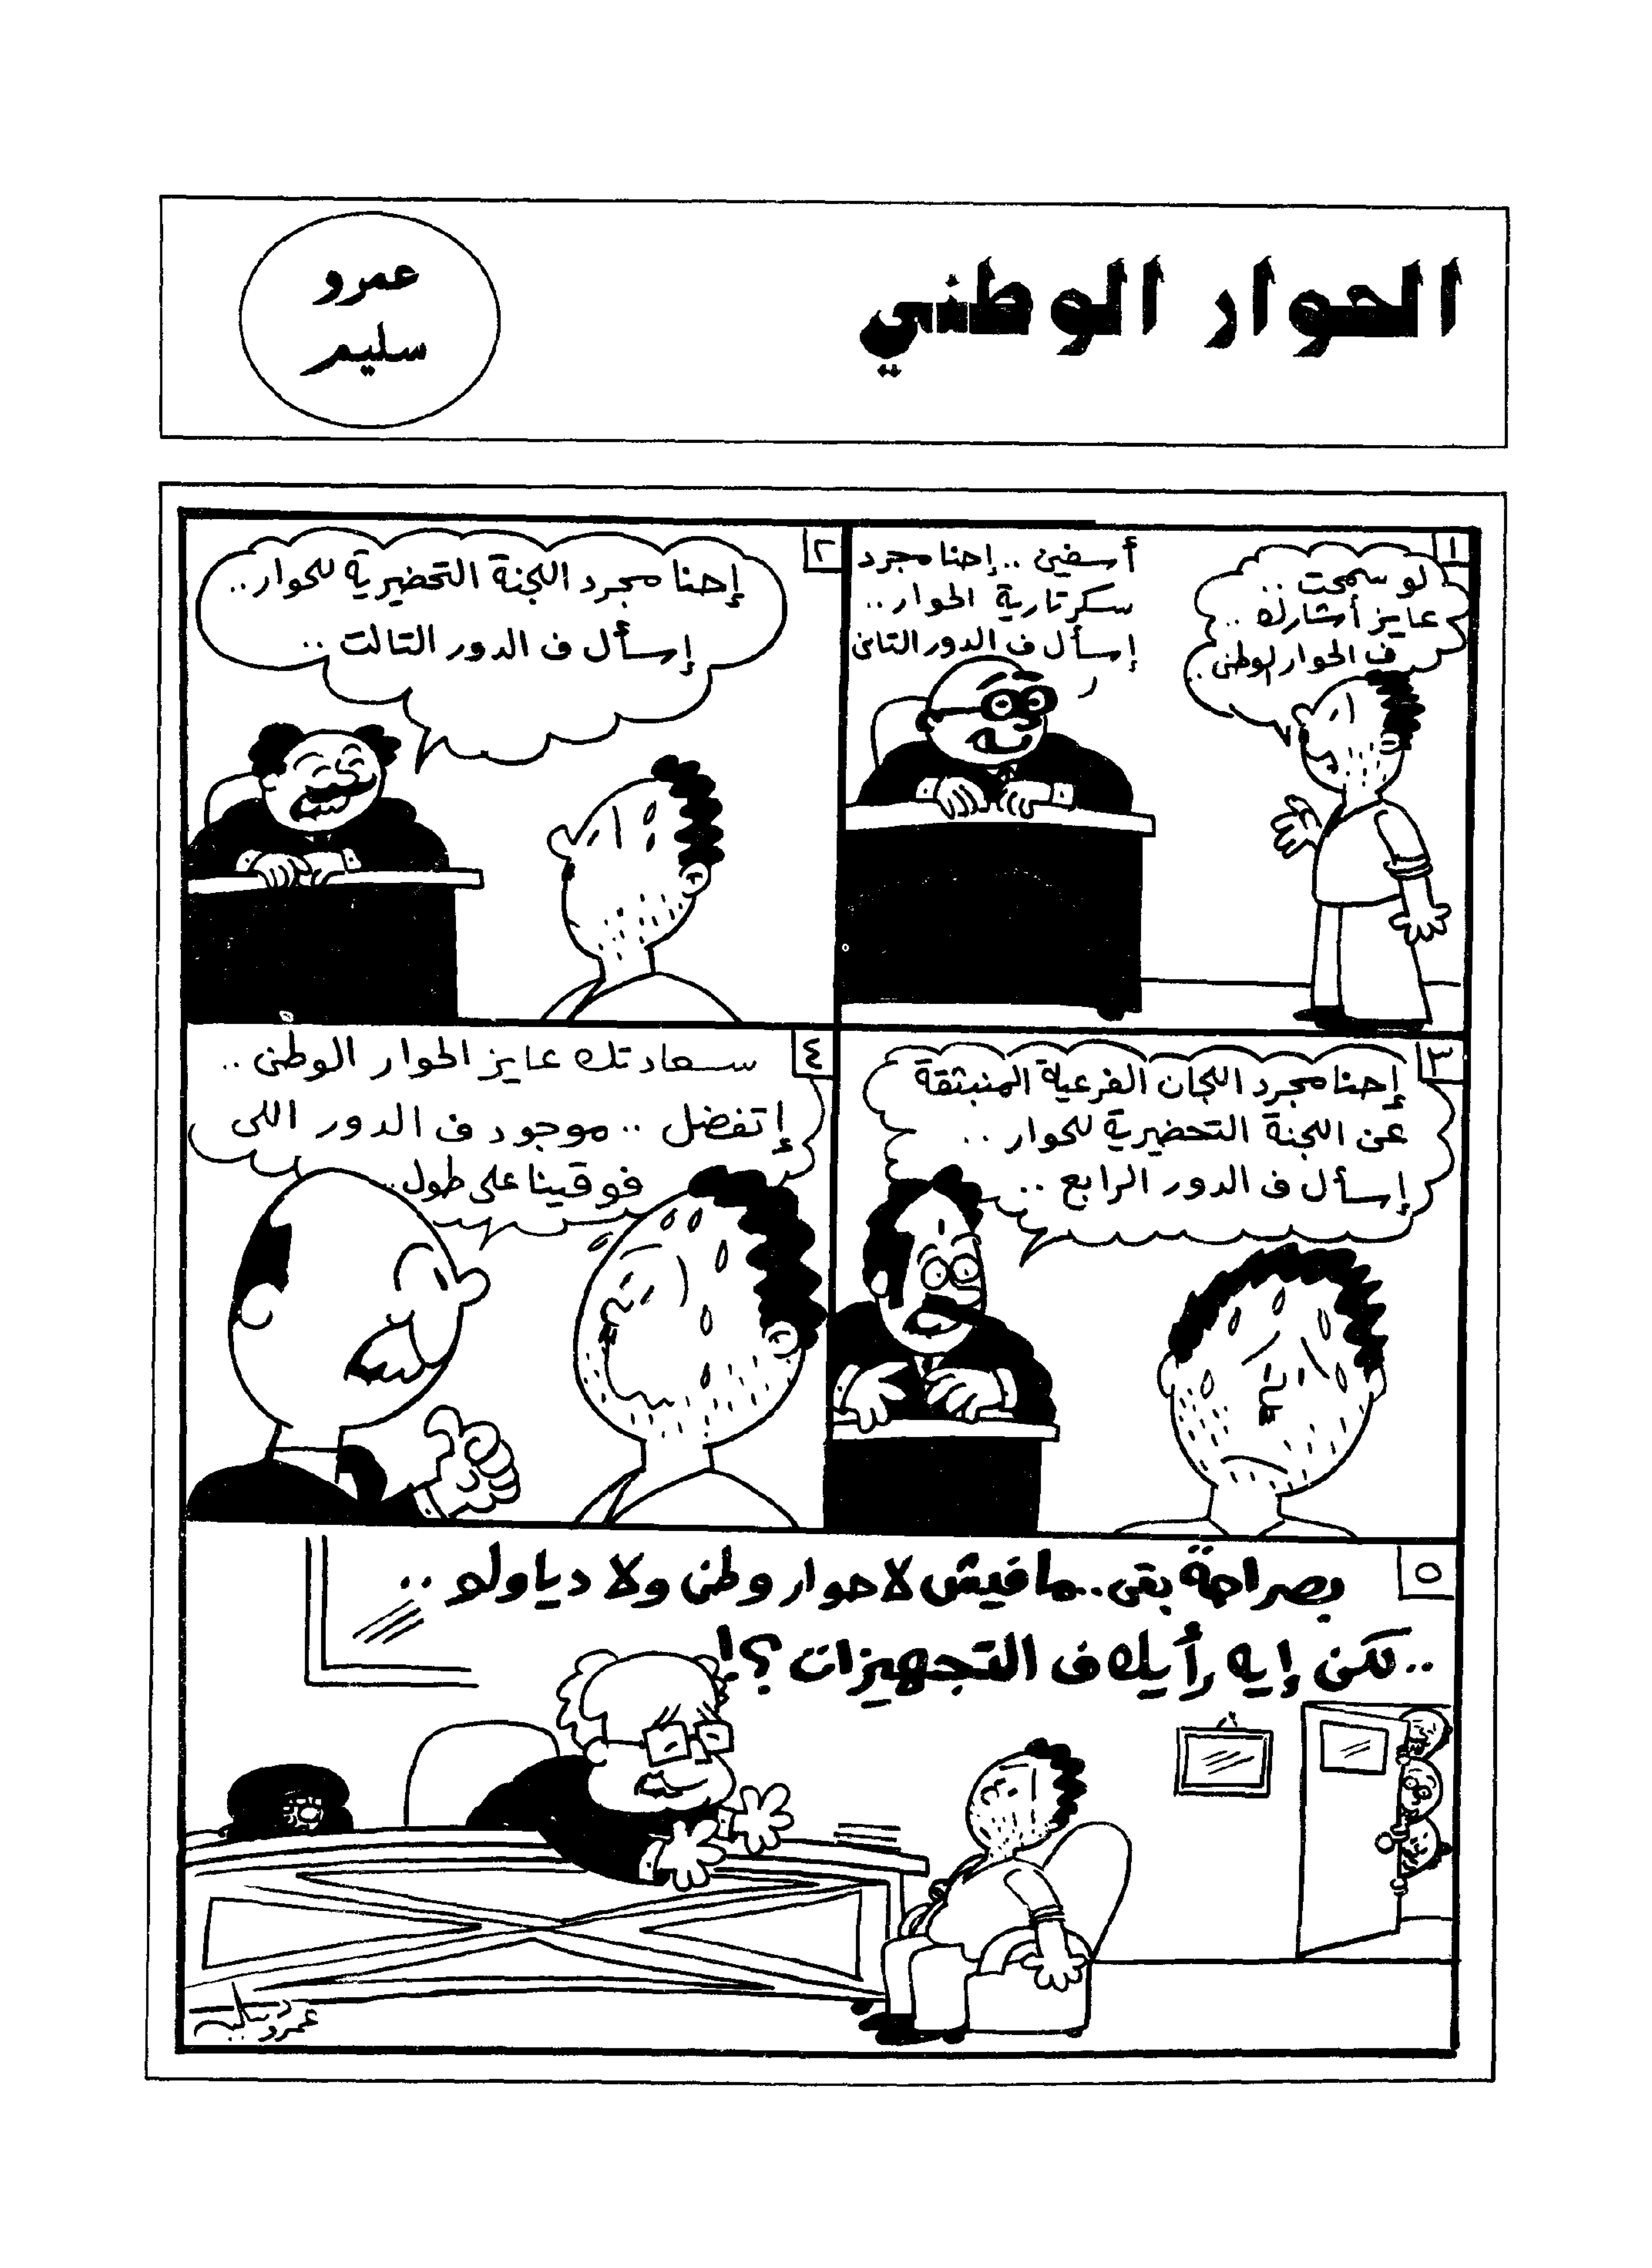 الحوار الوطني
عمرو
سليم
١
لو سمحت ..
عايز أشارك ..
ف الحوار الوطنى ..
أسفين .. إحنا مجرد
سكرتارية الحوار ..
إسأل ف الدور التانى
٢
إحنا مجرد اللجنة التحضيرية للحوار ..
إسأل ف الدور التالت ..
٣
إحنا مجرد اللجان الفرعية المنبثقة
عن اللجنة التحضيرية للحوار ..
إسأل ف الدور الرابع ..
٤
سعادتك عايز الحوار الوطنى ..
إتفضل .. موجود ف الدور اللى
فوقينا على طول ..
٥
بصراحة بقى .. مافيش لا حوار وطنى ولا دياولو ..
.. لكن إيه رأيك ف التجهيزات ؟!
عمرو سليم